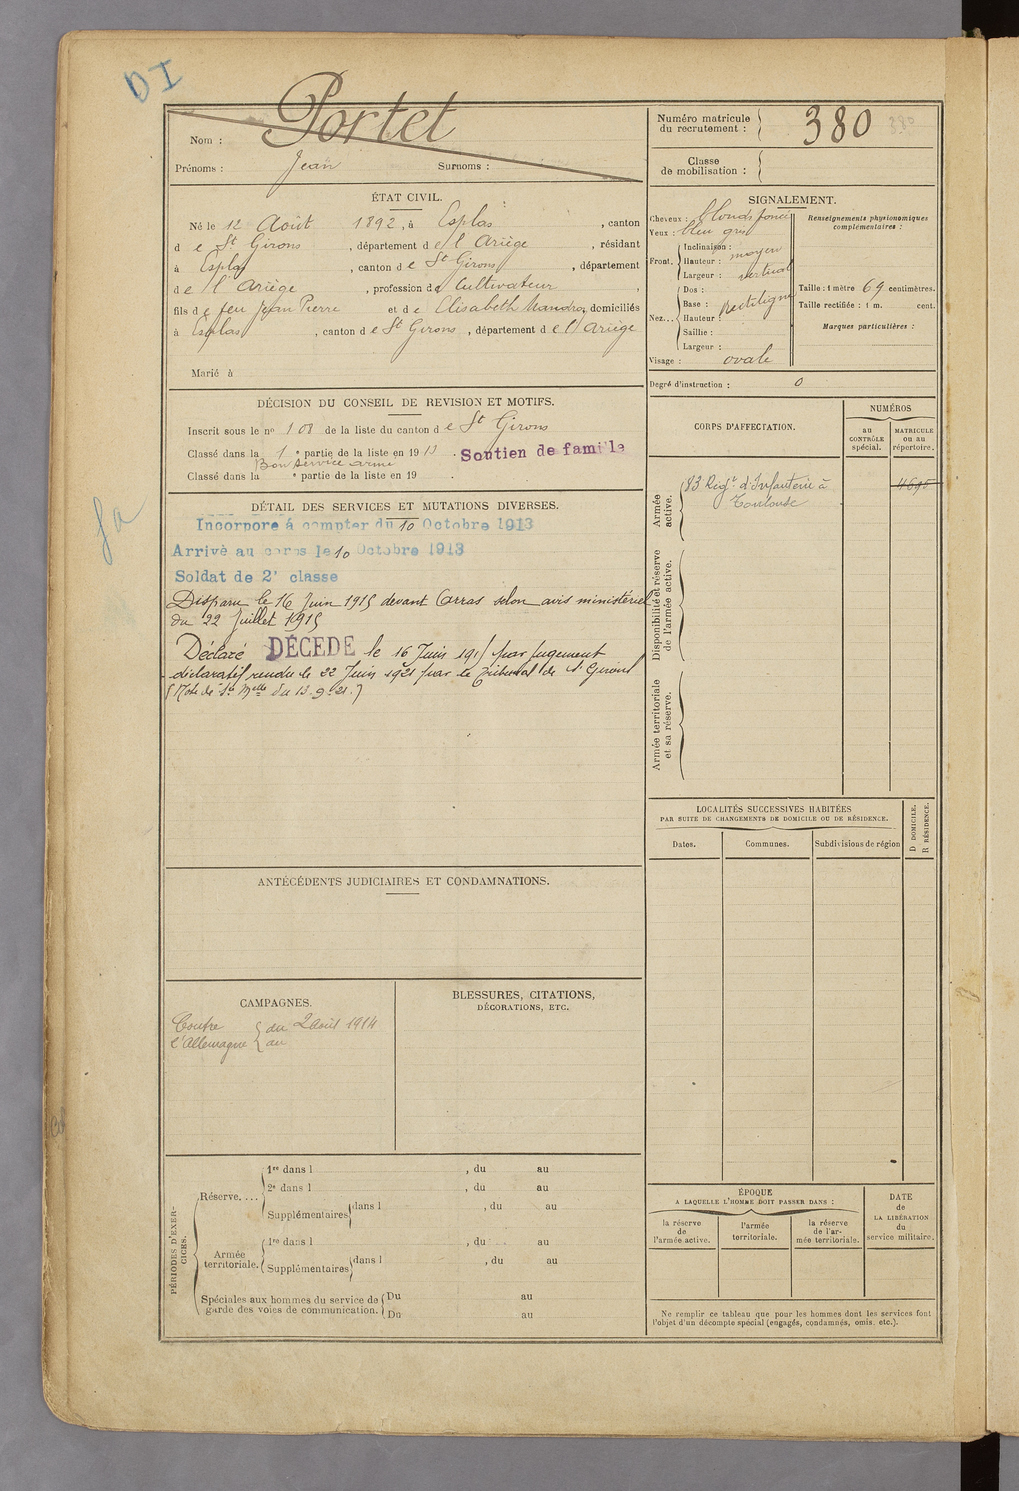 DI
Nom : Portet
Prénoms : Jean Surnoms :
Numéro matricule du recrutement : 380
380
Classe de mobilisation :
ÉTAT CIVIL.
Né le 12 Août 1892, à Esplas, canton
de St Girons, département de l'Ariège, résidant
à Esplas, canton de St Girons, département
de l'Ariège, profession de Cultivateur,
fils de feu Jean Pierre et de Elisabeth domiciliés
à Esplas, canton de St Girons, département de l'Ariège
Marié à
SIGNALEMENT.
Cheveux : blonds foncé
Yeux : bleu gris
Front. Inclinaison :
Hauteur : moyen
Largeur : vertical
Nez... Dos :
Base : Rectiligne
Hauteur :
Saillie :
Largeur :
Visage : ovale
Renseignements physionomiques complémentaires :
Taille : 1 mètre 69 centimètres.
Taille rectifiée : 1 m. cent.
Marques particulières :
Degré d'instruction : 0
DÉCISION DU CONSEIL DE REVISION ET MOTIFS.
Inscrit sous le no 108 de la liste du canton de St Girons
Classé dans la 1e partie de la liste en 1913. Soutien de famille
Bon service armé
Classé dans la e partie de la liste en 19 .
DÉTAIL DES SERVICES ET MUTATIONS DIVERSES.
Incorporé à compter du 10 Octobre 1913
Arrivé au corps le 10 Octobre 1913
Soldat de 2e classe
Disparu le 16 Juin 1915 devant Arras selon avis ministériel
du 22 Juillet 1915
Déclaré DÉCÉDÉ le 16 Juin 1915 par jugement
déclaratif rendu le 22 Juin 1921 par le Tribunal de St Girons
(Note de St Melle du 13.9.21.)
CORPS D'AFFECTATION.
NUMÉROS
au CONTRÔLE spécial.
MATRICULE ou au répertoire.
Armée active.
83 Regt d'Infanterie à
Toulouse
Disponibilité et réserve de l'armée active.
Armée territoriale et sa réserve.
LOCALITÉS SUCCESSIVES HABITÉES
PAR SUITE DE CHANGEMENTS DE DOMICILE OU DE RÉSIDENCE.
Dates. Communes. Subdivisions de région
D DOMICILE.
R RÉSIDENCE.
ANTÉCÉDENTS JUDICIAIRES ET CONDAMNATIONS.
CAMPAGNES.
Contre l'Allemagne du 2 Août 1914
au
BLESSURES, CITATIONS,
DÉCORATIONS, ETC.
PÉRIODES D'EXERCICES.
Réserve....
1re dans l , du au
2e dans l , du au
Supplémentaires dans l , du au
Armée territoriale.
1re dans l , du au
Supplémentaires dans l , du au
Spéciales aux hommes du service de garde des voies de communication.
Du au
Du au
ÉPOQUE
A LAQUELLE L'HOMME DOIT PASSER DANS :
la réserve de l'armée active.
l'armée territoriale.
la réserve de l'armée territoriale.
DATE de LA LIBÉRATION du service militaire.
Ne remplir ce tableau que pour les hommes dont les services font
l'objet d'un décompte spécial (engagés, condamnés, omis, etc.).